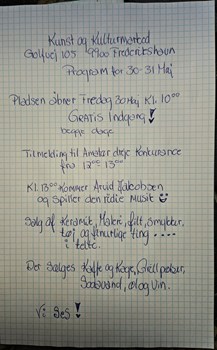 Kunst og Kulturmarked
Golfvej 105 9900 Frederikshavn
Program for 30-31 Maj
Pladsen åbner Fredag 30 Maj Kl. 10⁰⁰
GRATIS Indgang!
begge dage
Tilmelding til Amatør dreje Konkurance
fra 12⁰⁰ 13⁰⁰
Kl. 13⁰⁰ Kommer Arvid Jakobsen
og Spiller den rigtige Musik ☺
Salg af Keramik, Maleri, filt, smykker,
tøj og finurlige ting ....
i telte.
Der Sælges Kaffe og Kage, Grill pølser,
Sodavand, øl og vin.
Vi Ses!